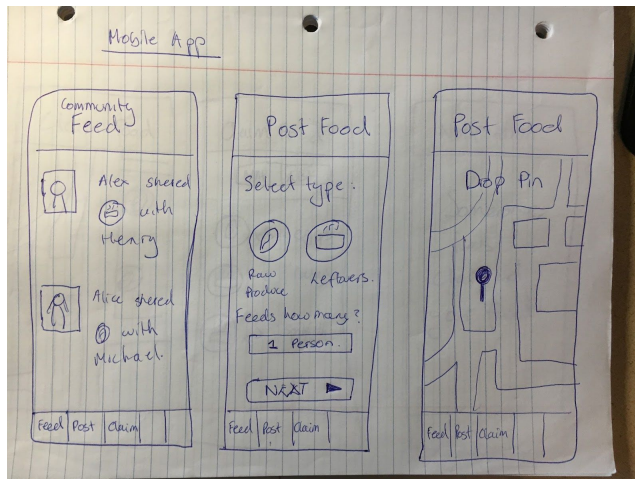 Mobile App
Community
Feed
Alex shared
with
Henry
Alice shared
with
Michael.
Feed Post Claim
Post Food
Select type:
Raw
Produce
Leftovers.
Feeds how many?
1 Person.
NEXT
Feed Post Claim
Post Food
Drop Pin
Feed Post Claim